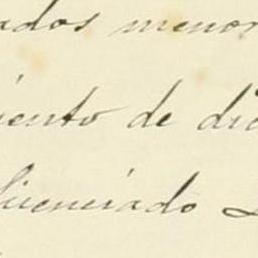 ados menor
iento de dic
Licenciado